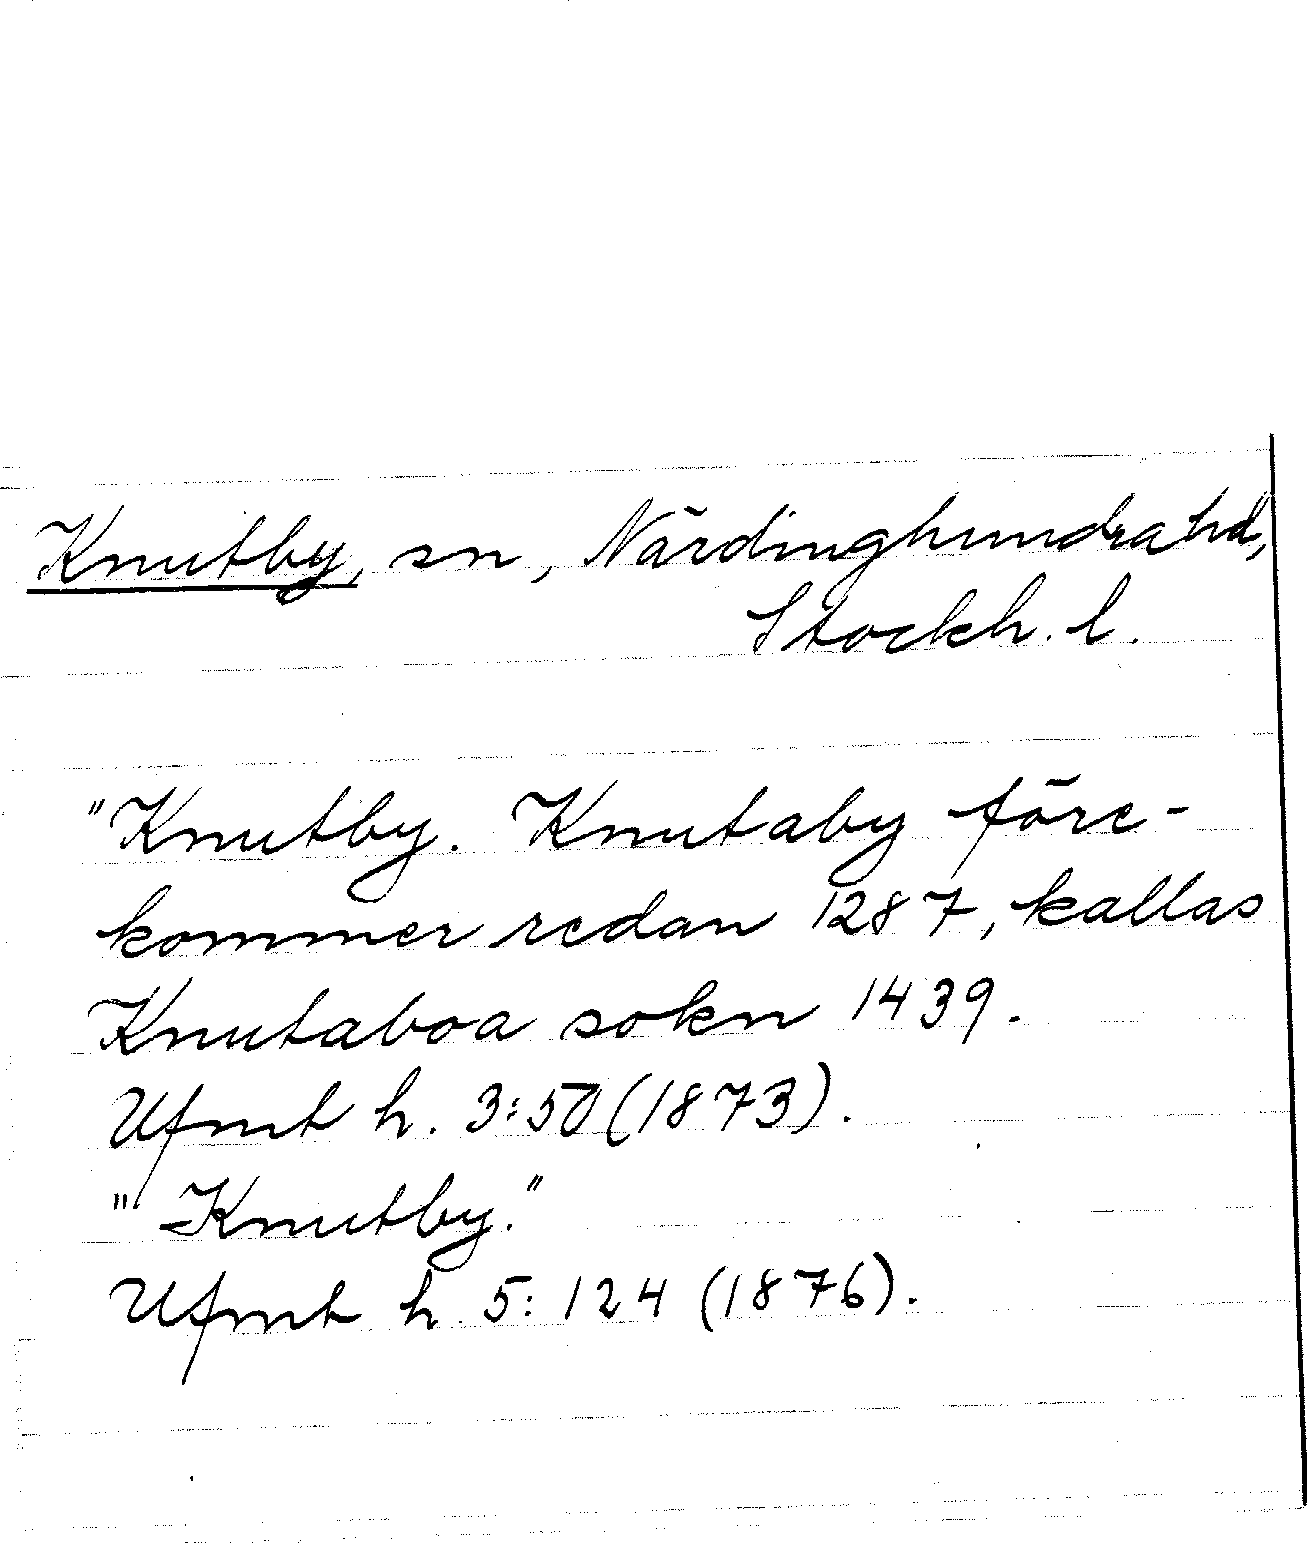 Knutby, sn, Närdinghundra hd,
Stockh. l.
"Knutby. Knutaby före-
kommer redan 1287, kallas
Knutaboa sokn 1439.
Ufmt h. 3:50 (1873).
"Knutby."
Ufmt h. 5: 124 (1876).